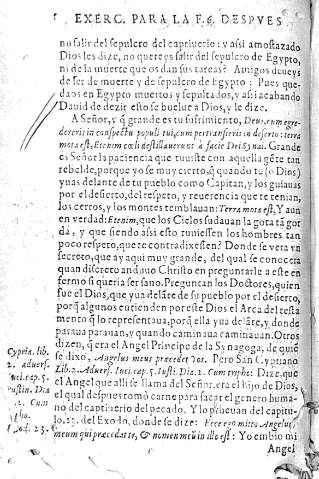 EXERC. PARA LA F. 6. DESPVES
no salir del sepulcro del captiuerio: y assi amostazado
Dios les dize, no quereys salir del sepulcro de Egypto,
ni de la muerte que os dan sus tareas? Amigos deueys
de ser de muerte y de sepulcro de Egypto: Pues que-
daos en Egypto muertos y sepultados, y assi acabando
Dauid de dezir esto se buelue a Dios, y le dize.
A Señor, y q̃ grande es tu sufrimiento, Deus, cum egre-
dereris in conspectu populi tui, cum pertransirris in deserto: terra
mota est, Etenim cœli destillauerunt à facie Dei Sinai. Grande
es Señor la paciencia que tuuiste con aquella gẽte tan
rebelde, porque yo se muy cierto, q̃ quando tu (o Dios)
yuas delante de tu pueblo como Capitan, y los guiauas
por el desierto, del respeto, y reuerencia que te tenian,
los cerros, y los montes temblauan: Terra mota est, Y aun
en verdad: Etenim, que los Cielos sudauan la gota tã gor
da, y que siendo assi esto tuuiessen los hombres tan
poco respeto, que te contradixessen? Donde se vera vn
secreto, que ay aqui muy grande, del qual se conocera
quan discreto anduuo Christo en preguntarle a este en-
fermo si queria ser sano. Preguntan los Doctores, quien
fue el Dios, que yua delãte de su pueblo por el desierto,
porq̃ algunos entienden por este Dios el Arca del testa
mento q̃ lo representaua, porq̃ ella yua delãte, y donde
paraua parauan, y quando caminaua caminauan. Otros
dizen, q̃ era el Angel Principe de la Synagoga, de quiẽ
se dixo, Angelus meus præcedet vos. Pero San Cypriano
Lib. 2. Aduers. Iuci. cap. 5. Iusti. Dia. 2. Cum tryphe: Dize, que
el Angel que alli se llama del Señor, era el hijo de Dios,
el qual despues tomò carne para sacar el genero huma-
no del captiuerio del pecado. Y lo prueuan del capitu-
lo. 23. del Exodo, donde se dize: Ecce ego mitto Angelum
meum qui præcedat te, & nomen meũ in illo est: Yo embio mi
Angel
Cypria. lib.
2. aduers.
Iuci. cap. 5.
Iustin. Dia
2. Cum
od. 23.